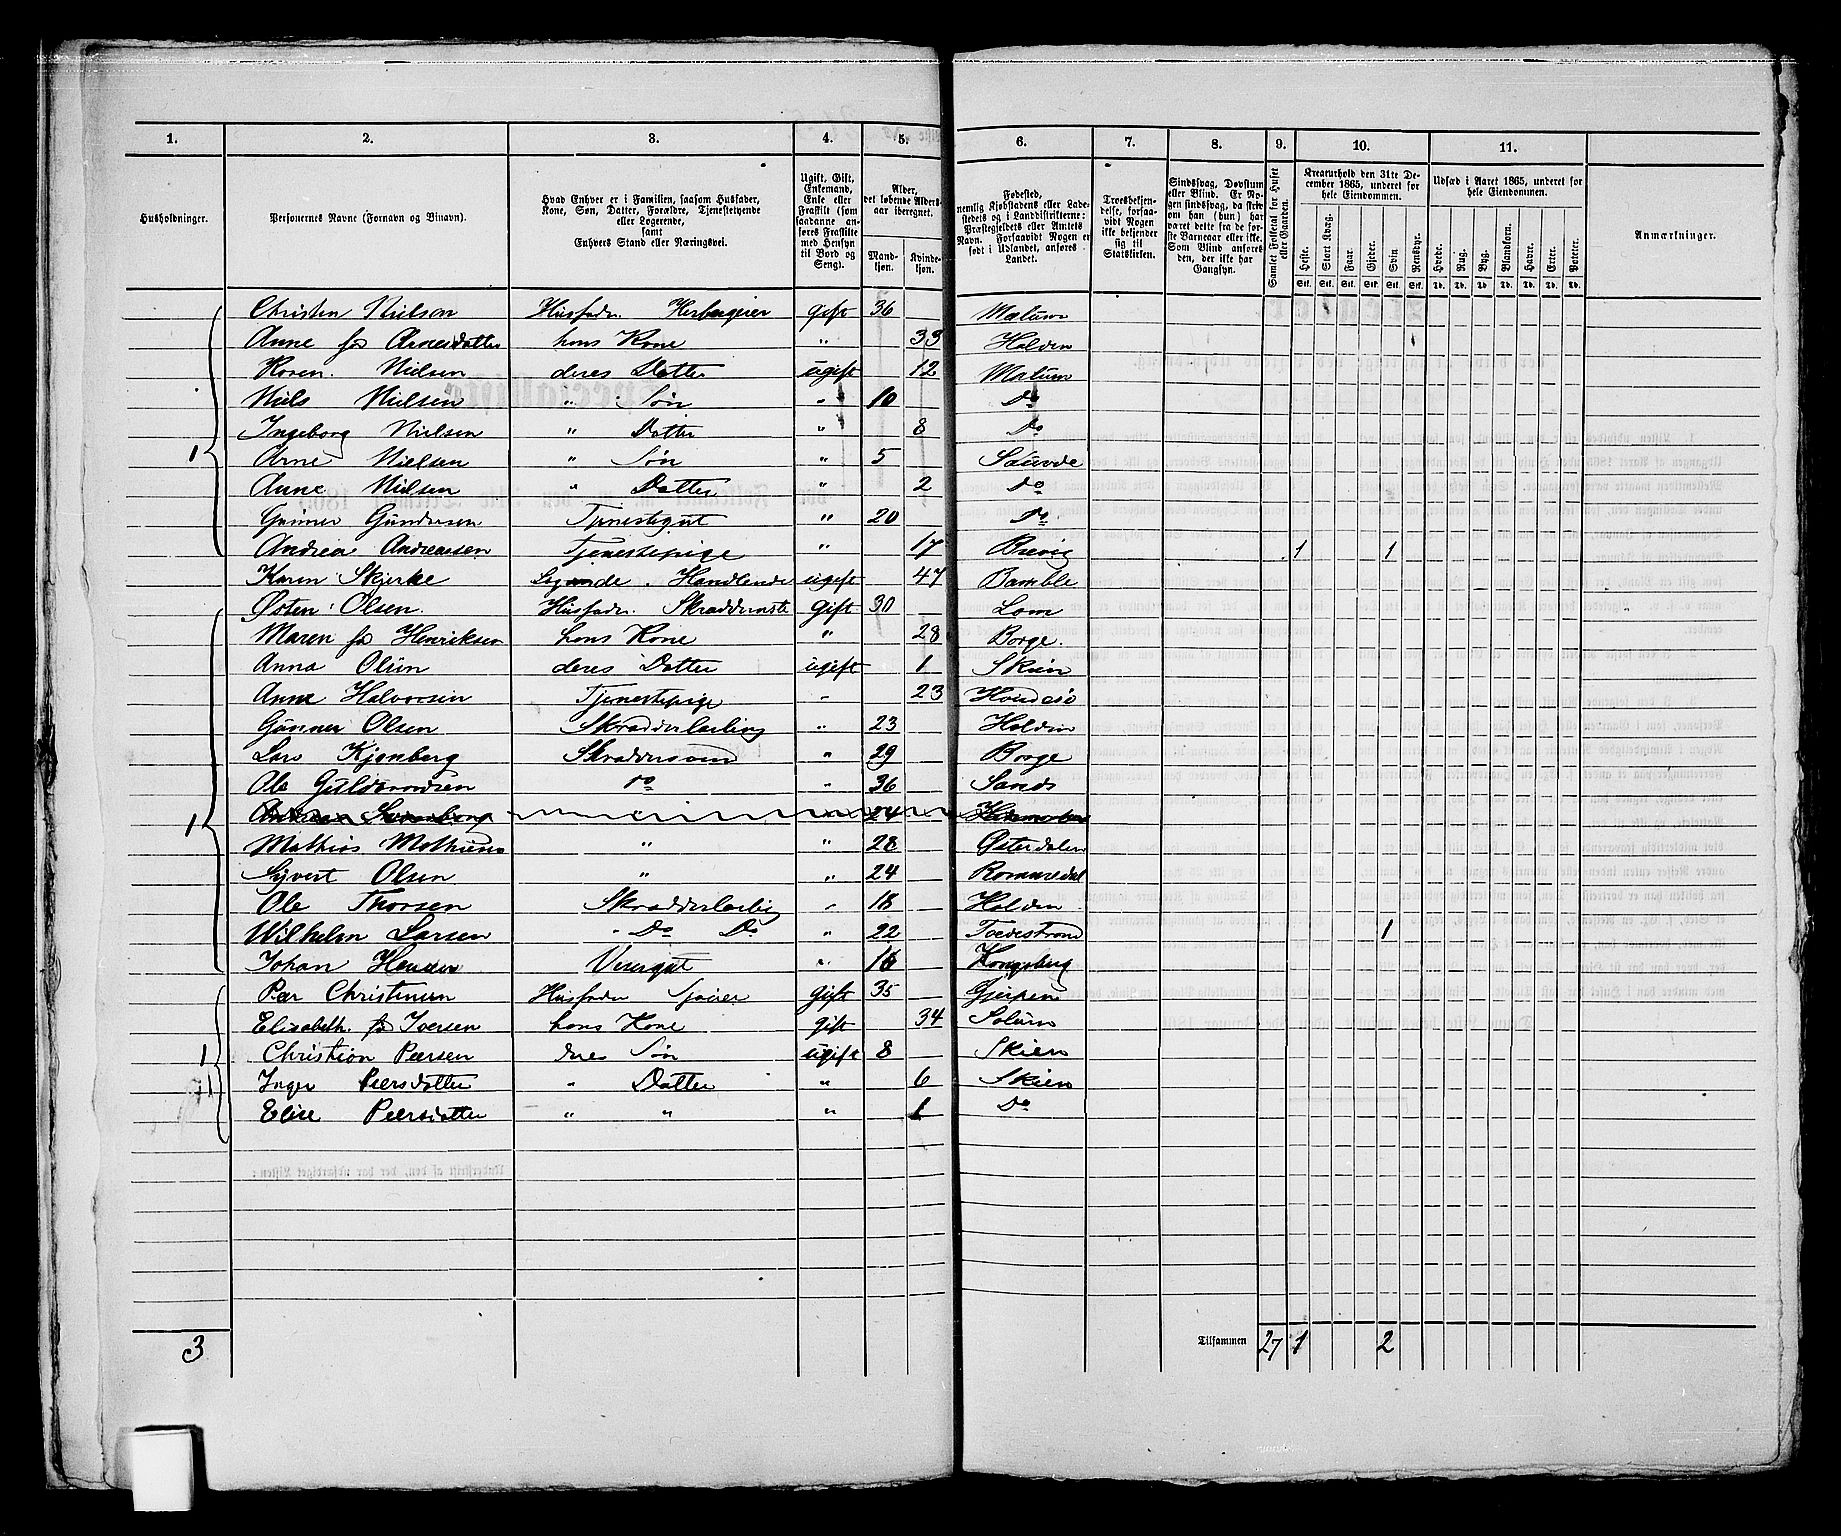 1. 2. 3. 4. 5. 6. 7. 8. 9. 10. 11.
Husholdninger.
Personernes Navne (Fornavn og Binavn).
Hvad Enhver er i Familien, saasom Husfader,
Kone, Søn, Datter, Forældre, Tjenestetyende
eller Logerende,
samt
Enhvers Stand eller Næringsvei.
Ugift, Gift,
Enkemand,
Enke eller
Fraskilt (som
saadanne an-
føres Fraskilte
med Hensyn
til Bord og
Seng).
Alder,
det løbende Alders-
aar iberegnet.
Mand-
kjøn.
Kvinde-
kjøn.
Fødested,
nemlig Kjøbstadens eller Lade-
stedets og i Landdistrikterne:
Præstegjeldets eller Amtets
Navn. Forsaavidt Nogen er
født i Udlandet, anføres
Landet.
Troesbekjen-
delse, forsaa-
vidt Nogen
ikke bekjender
sig til
Statskirken.
Sindssvag, Døvstum
eller Blind. Er No-
gen sindssvag, da skriv
om han (hun) har
været dette fra de før-
ste Barneaar eller ikke.
Som Blind anføres
den, der ikke har
Gangsyn.
Samlet Folketal for Huset
eller Gaarden.
Kreaturhold den 31te De-
cember 1865, underet for
hele Eiendommen.
Heste. Stort Kvæg. Faar. Gjeder. Svin. Rensdyr.
Stk. Stk. Stk. Stk. Stk. Stk.
Udsæd i Aaret 1865, underet for
hele Eiendommen.
Hvede. Rug. Byg. Blandkorn. Havre. Erter. Poteter.
Td. Td. Td. Td. Td. Td. Td.
Anmærkninger.
Christen Nielsen Husfader Herbergeier gift 36 Melum
Anne fød Arnesdatter hans Kone " 33 Holden
Karen Nielsen deres Datter ugift 12 Melum
Niels Nielsen " Søn " 10 Do
Ingeborg Nielsen " Datter " 8 Do
1 Arne Nielsen " Søn " 5 Saude
Anne Nielsen " Datter " 2 Do
Gunner Gundersen Tjenestegut " 20 Do
Andrea Andreassen Tjenestepige " 17 Brevig 1 1
Karen Skjerke Handlende ugift 47 Bamble
Østen Olsen Husfader Skræddermstr gift 30 Lom
Maren fø Henriksen hans Kone " 28 Borge
Anna Olsen deres Datter ugift 1 Skien
Anne Halvorsen Tjenestepige " 23
Gunner Olsen Skrædderlærling " 23 Holden
Lars Kjønberg Skræddersvend " 29 Borge
Ole Guldbrandsen do " 36 Sands
24
1 Mathias Mathiesen " " 28 Østerdalen
Sivert Olsen " " 24 Romsedal
Ole Thorsen Skrædderlærlig " 18 Holden
Wilhelm Larsen " Do Do " 22 Tvedestrand 1
Johan Hansen Visergut " 16 Kongsberg
Peer Christensen Husfader Sjøier Gift 35 Gjerpen
Elisabeth fø Iversen hans Kone gift 34 Solum
1 Christian Peersen deres Søn ugift 8 Skien
Inger Peersdatter " Datter " 6 Skien
Elise Peersdatter " " " 1 Do
3 Tilsammen 27 1 2